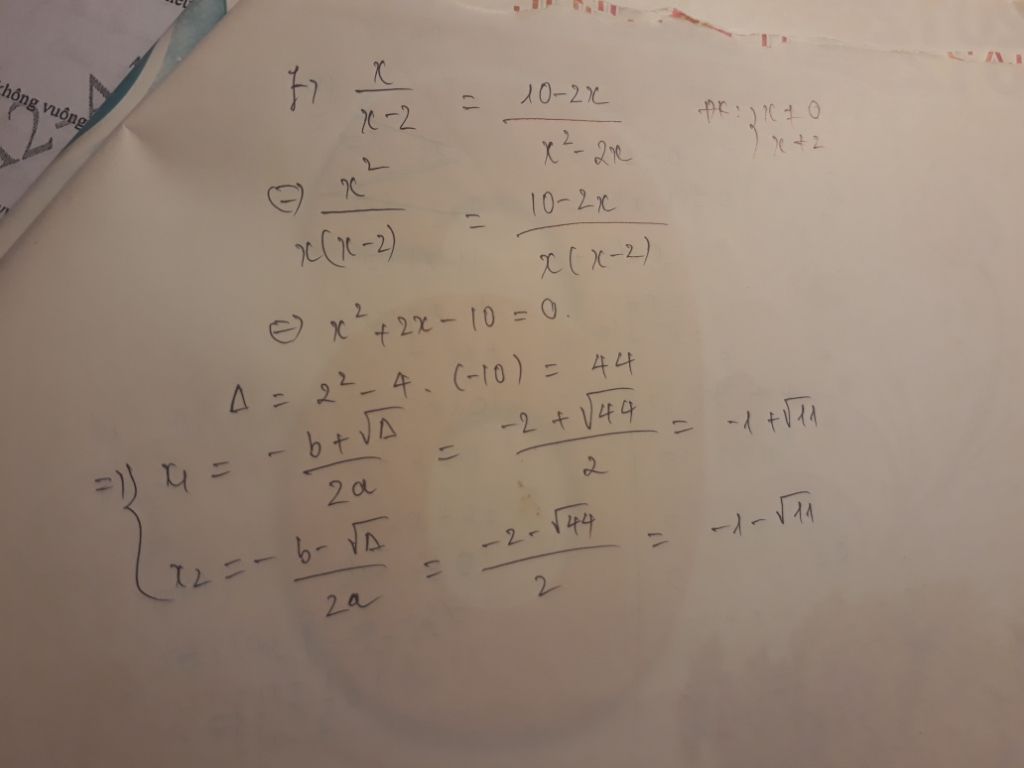 không vuông
f) x/(x-2) = (10-2x)/(x²-2x) ĐK: { x ≠ 0
x ≠ 2
⇔ x²/(x(x-2)) = (10-2x)/(x(x-2))
⇔ x² + 2x - 10 = 0.
Δ = 2² - 4. (-10) = 44
=> { x₁ = - (b+√Δ)/(2a) = (-2+√44)/2 = -1+√11
x₂ = - (b-√Δ)/(2a) = (-2-√44)/2 = -1-√11